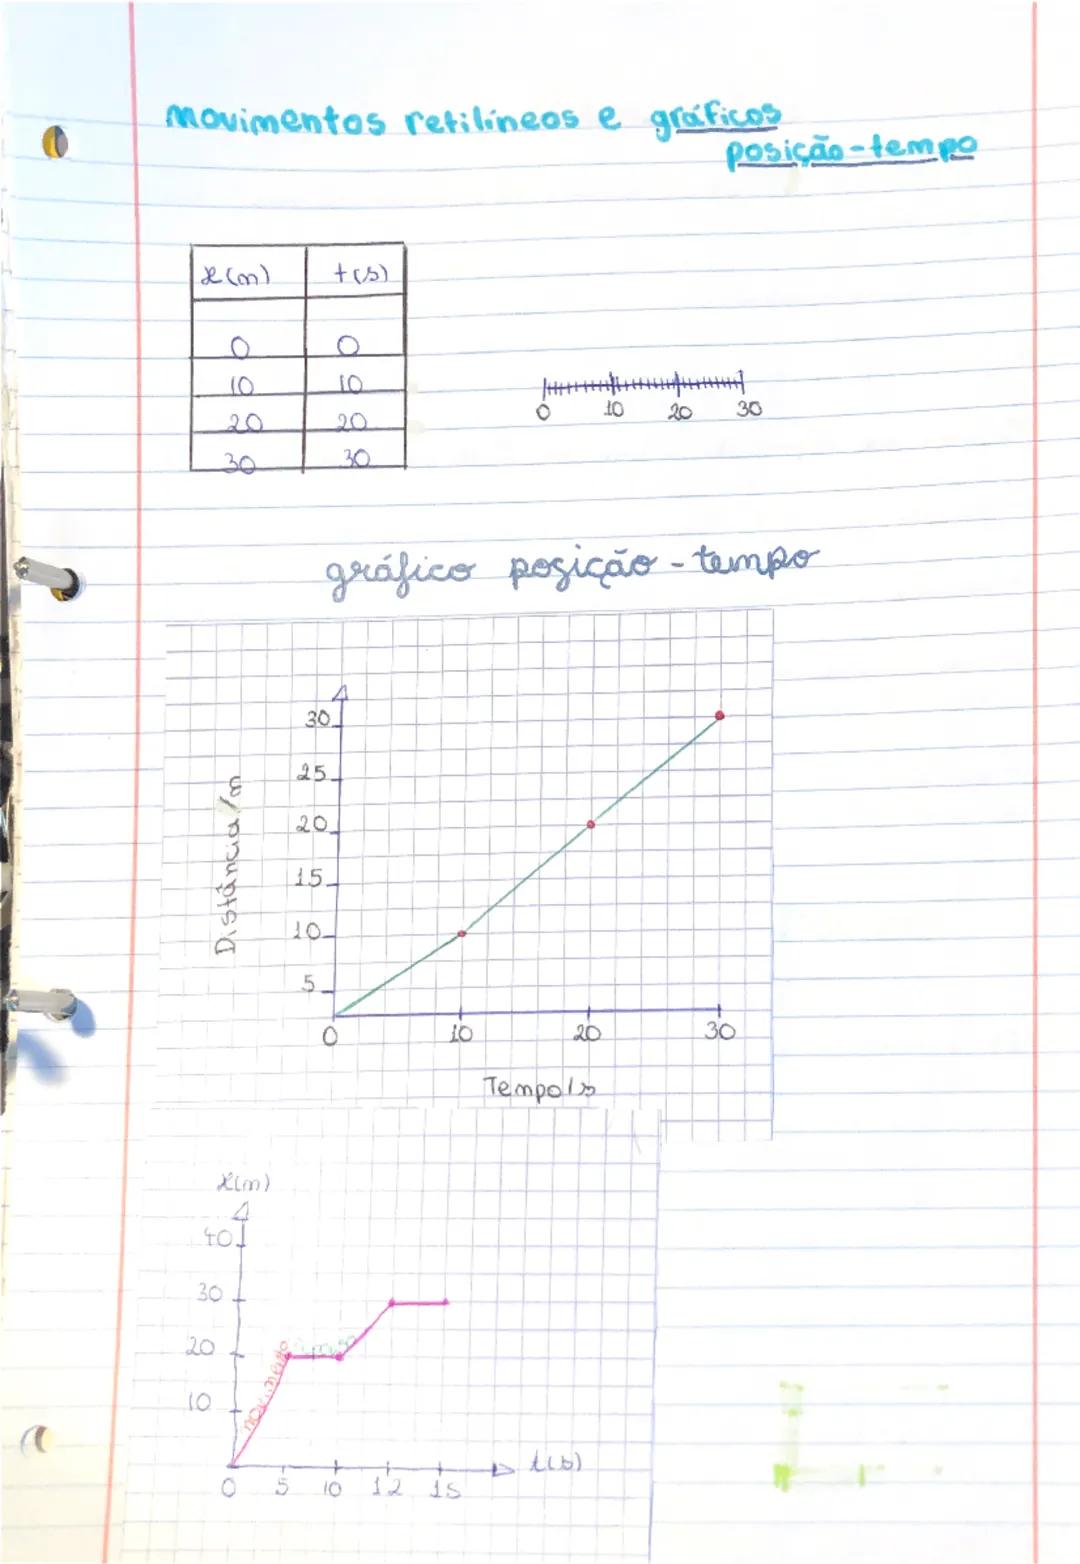 movimentos retilíneos e gráficos
posição-tempo
x(m) t(s)
0 0
10 10
20 20
30 30
0 10 20 30
gráfico posição-tempo
30
25
20
15
10
5
Distância/m
0 10 20 30
Tempo/s
x(m)
40
30
20
10
movimento
0 5 10 12 15
t(s)